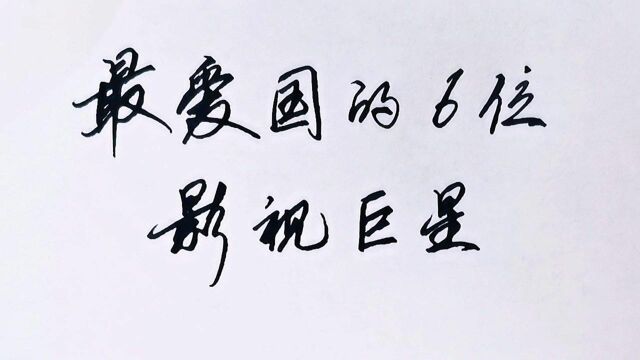 最爱国的6位
影视巨星